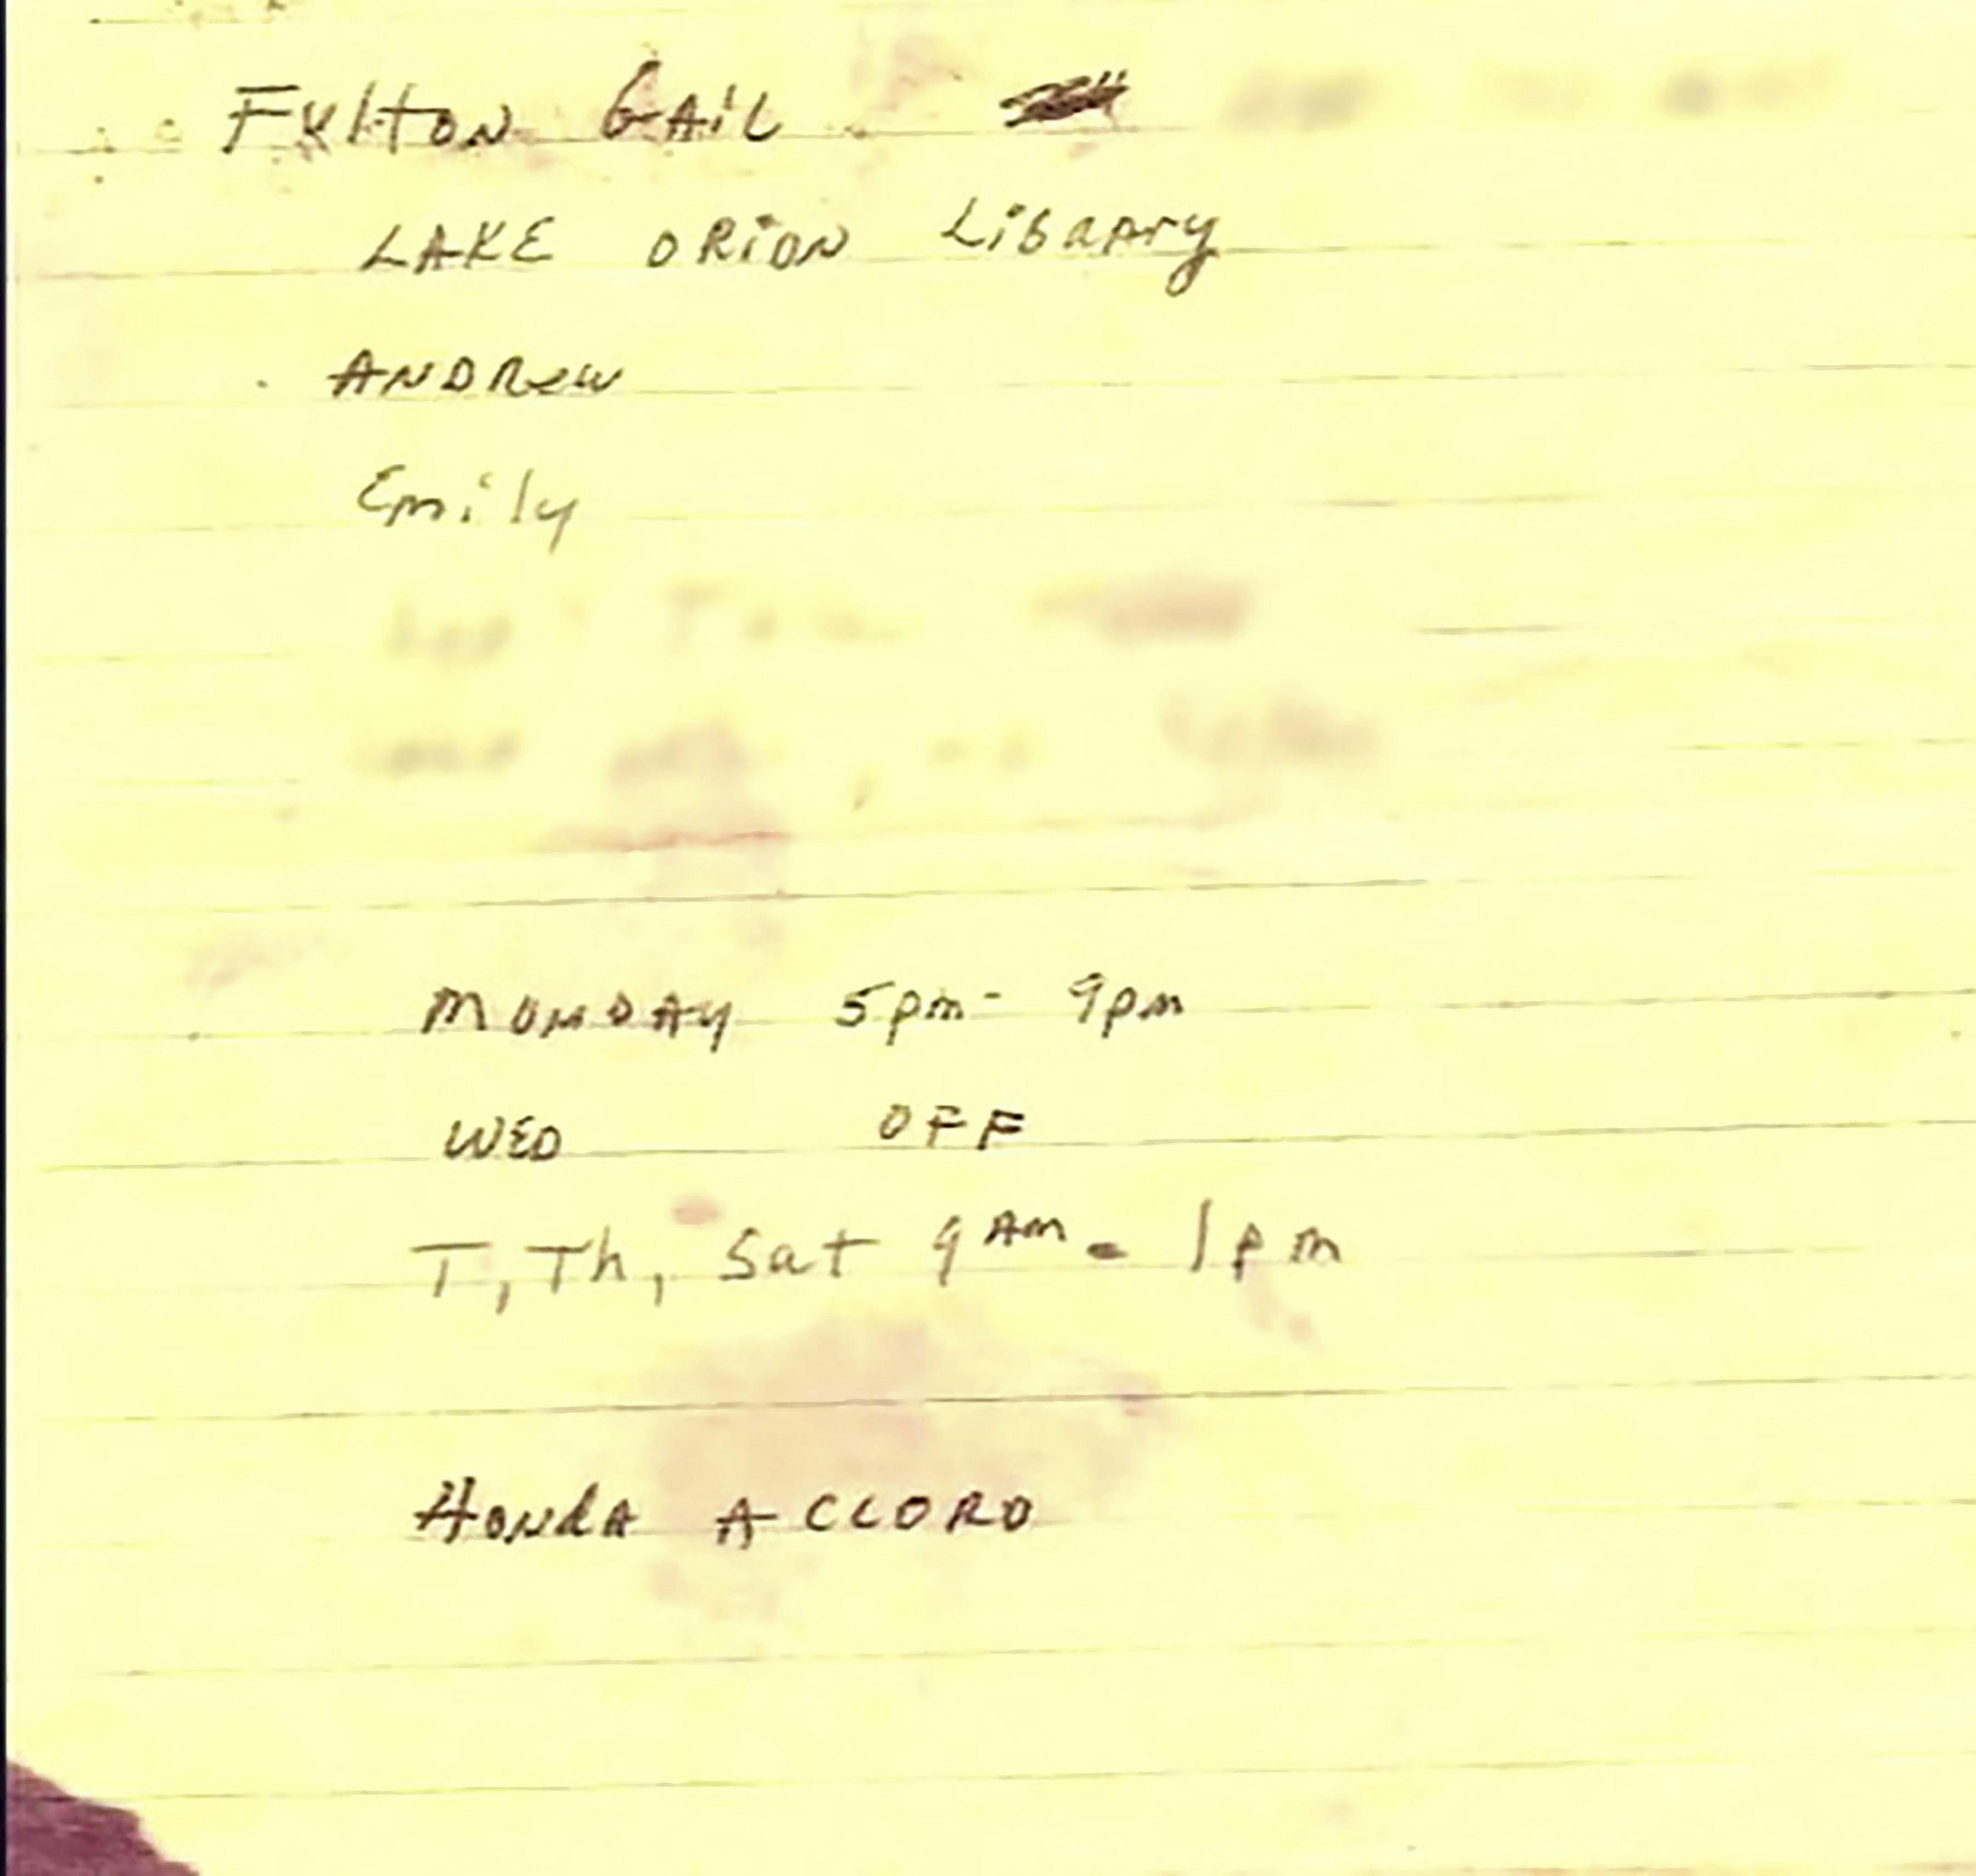 Fulton GAiL
LAKE ORiON Libarry
ANDRew
Emily
MONDAY 5pm - 9pm
WED OFF
T, Th, Sat 9 AM - 1pm
HONdA ACCORD